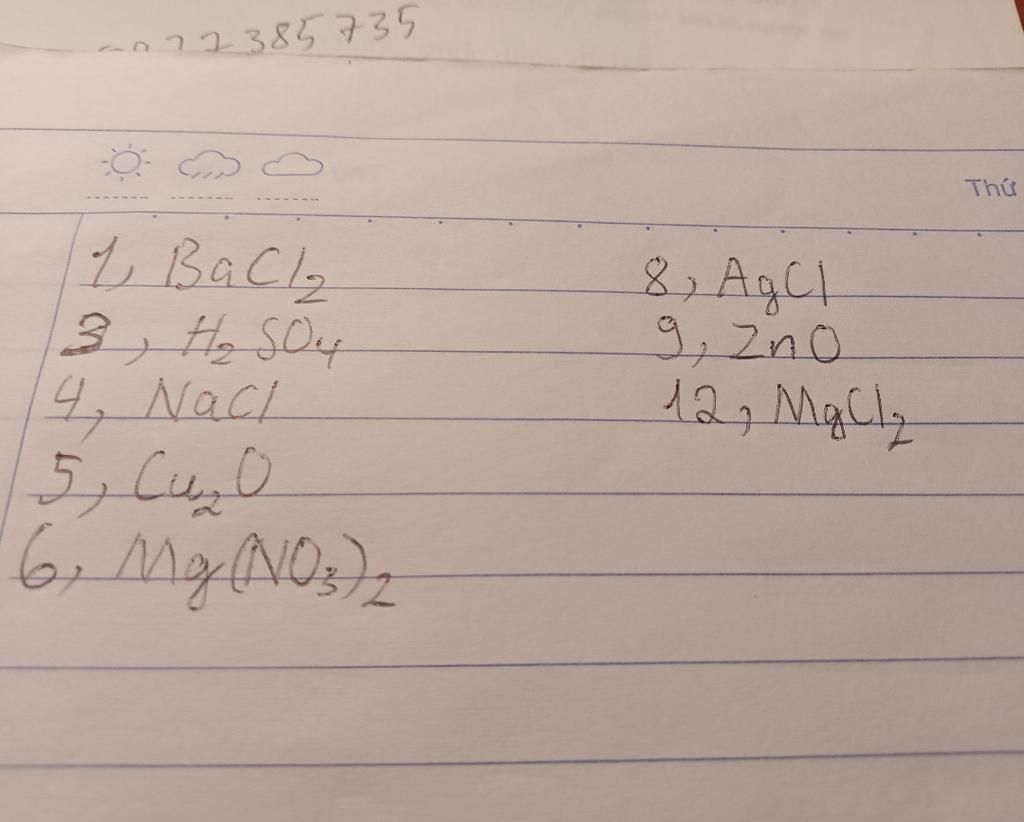 385735
Thứ
1, BaCl₂
3, H₂SO₄
4, NaCl
5, Cu₂O
6, Mg(NO₃)₂
8, AgCl
9, ZnO
12, MgCl₂